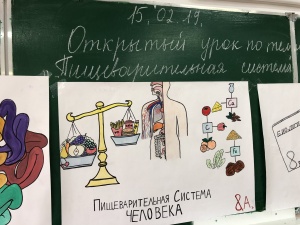 15.02.19.
Открытый урок по теме
"Пищеварительная система
Пищеварительная Система
ЧЕЛОВЕКА
8А.